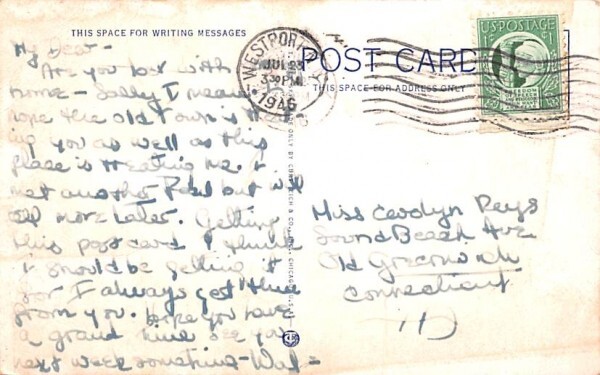 THIS SPACE FOR WRITING MESSAGES
My Dear -
Are you back with
home - Sally I mean
hope the old town is treat
ing you as well as this
place is treating me. I
met another but will
tell more later. Getting
this post card I think
I should be getting it
for I always get them
from you. Hope you have
a grand time see you
next week sometime - Wal -
WESTPORT
JUL 23
3 30 PM
1946
POST CARD
THIS SPACE FOR ADDRESS ONLY
U.S. POSTAGE
1¢
FREEDOM
OF SPEECH
AND RELIGION
FROM WANT
AND FEAR
Miss Carolyn Reys
Sound Beach Ave
Old Greenwich
Connecticut